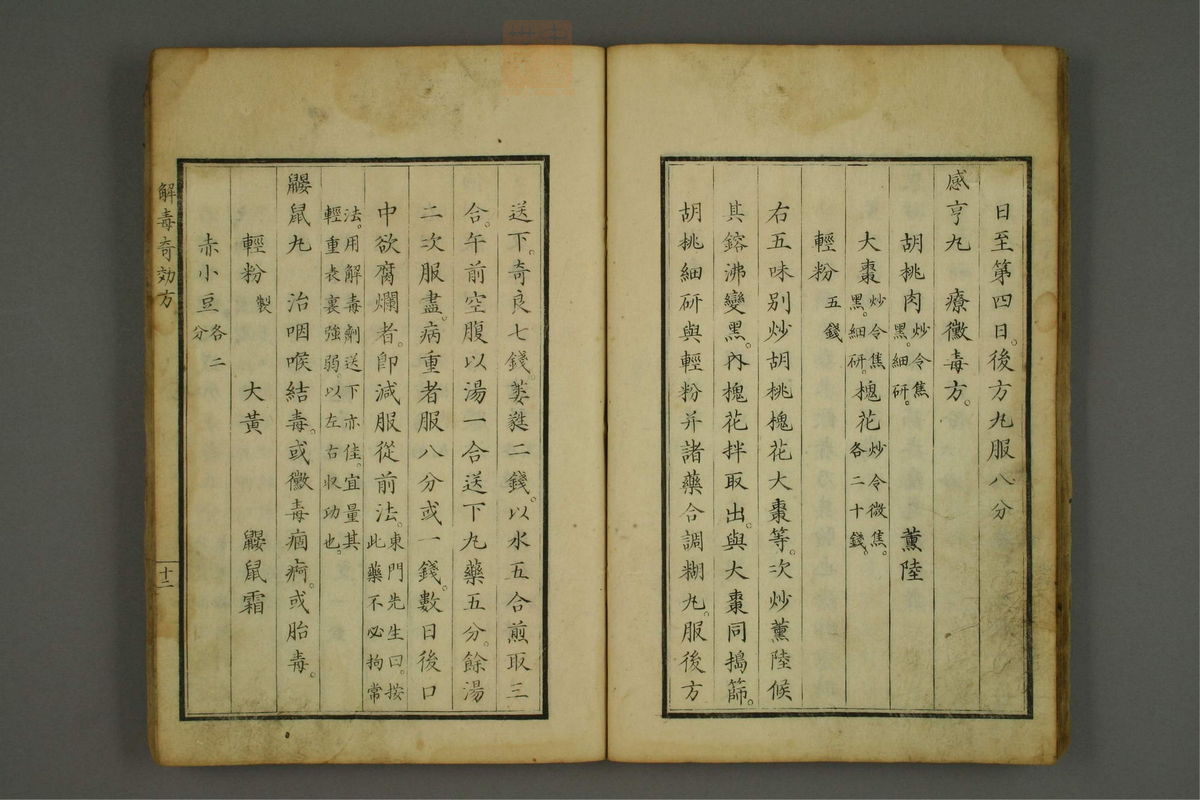 日至第四日。後方丸服八分
感亨丸　療黴毒方。
胡桃肉炒令焦黑。細研。　薰陸
大棗炒令焦黑。細研。　槐花炒令微焦。各二十錢。
輕粉五錢
右五味別炒胡桃槐花大棗等。次炒薰陸候
其鎔沸變黑。內槐花拌取出。與大棗同搗篩。
胡桃細研與輕粉并諸藥合調糊丸。服後方
送下。奇良七錢。萎蕤二錢。以水五合煎取三
合。午前空腹以湯一合送下丸藥五分。餘湯
二次服盡。病重者服八分或一錢。數日後口
中欲腐爛者。卽減服從前法。東門先生曰。按此藥不必拘常
法。用解毒劑送下亦佳。宜量其輕重表裏強弱。以左右収功也。
鼹鼠丸　治咽喉結毒。或黴毒痼痾。或胎毒。
輕粉製　大黃　鼹鼠霜
赤小豆各二分
解毒奇効方
十二